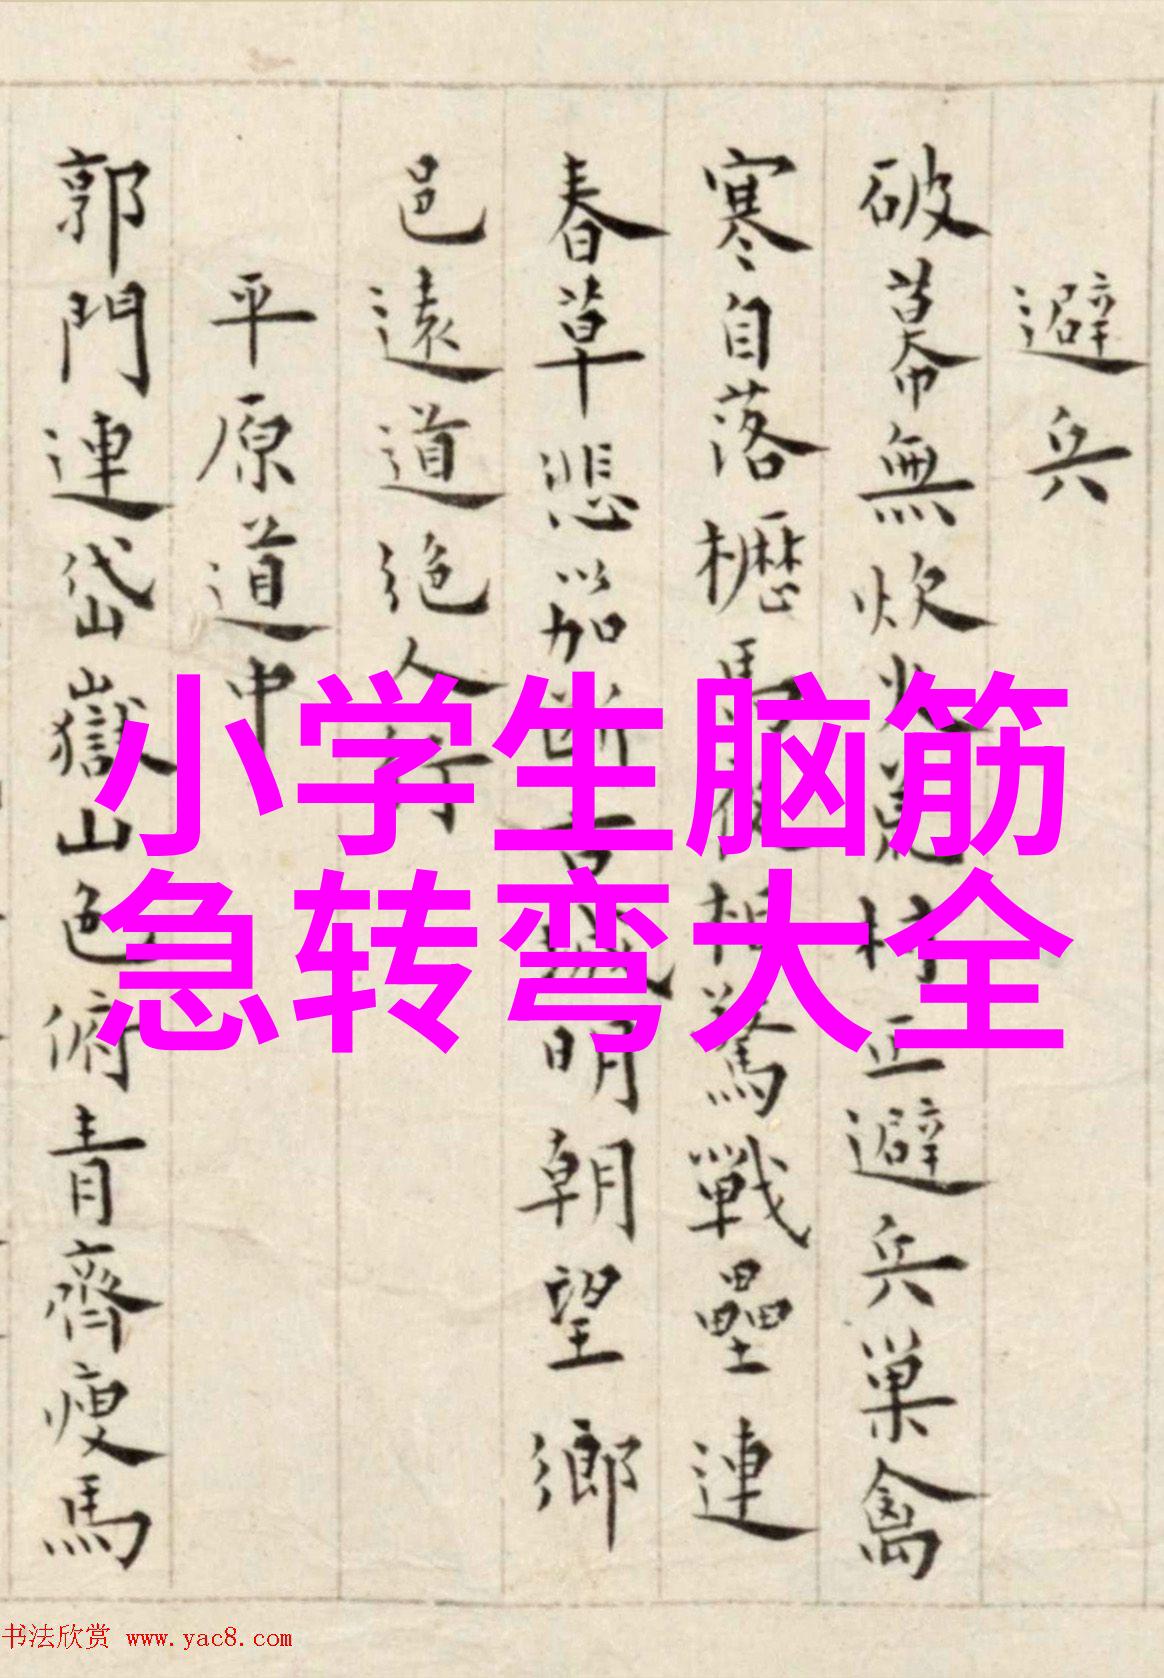 避兵
破幕無炊火荒村正避兵巢禽
寒自落櫪馬夜相驚戰壘連
春草悲笳斷古城明朝望鄉
邑遠道絶人行
平原道中
郭門連岱嶽山色俯青齊瘦馬
小学生脑筋
急转弯大全
书法欣赏 www.yac8.com